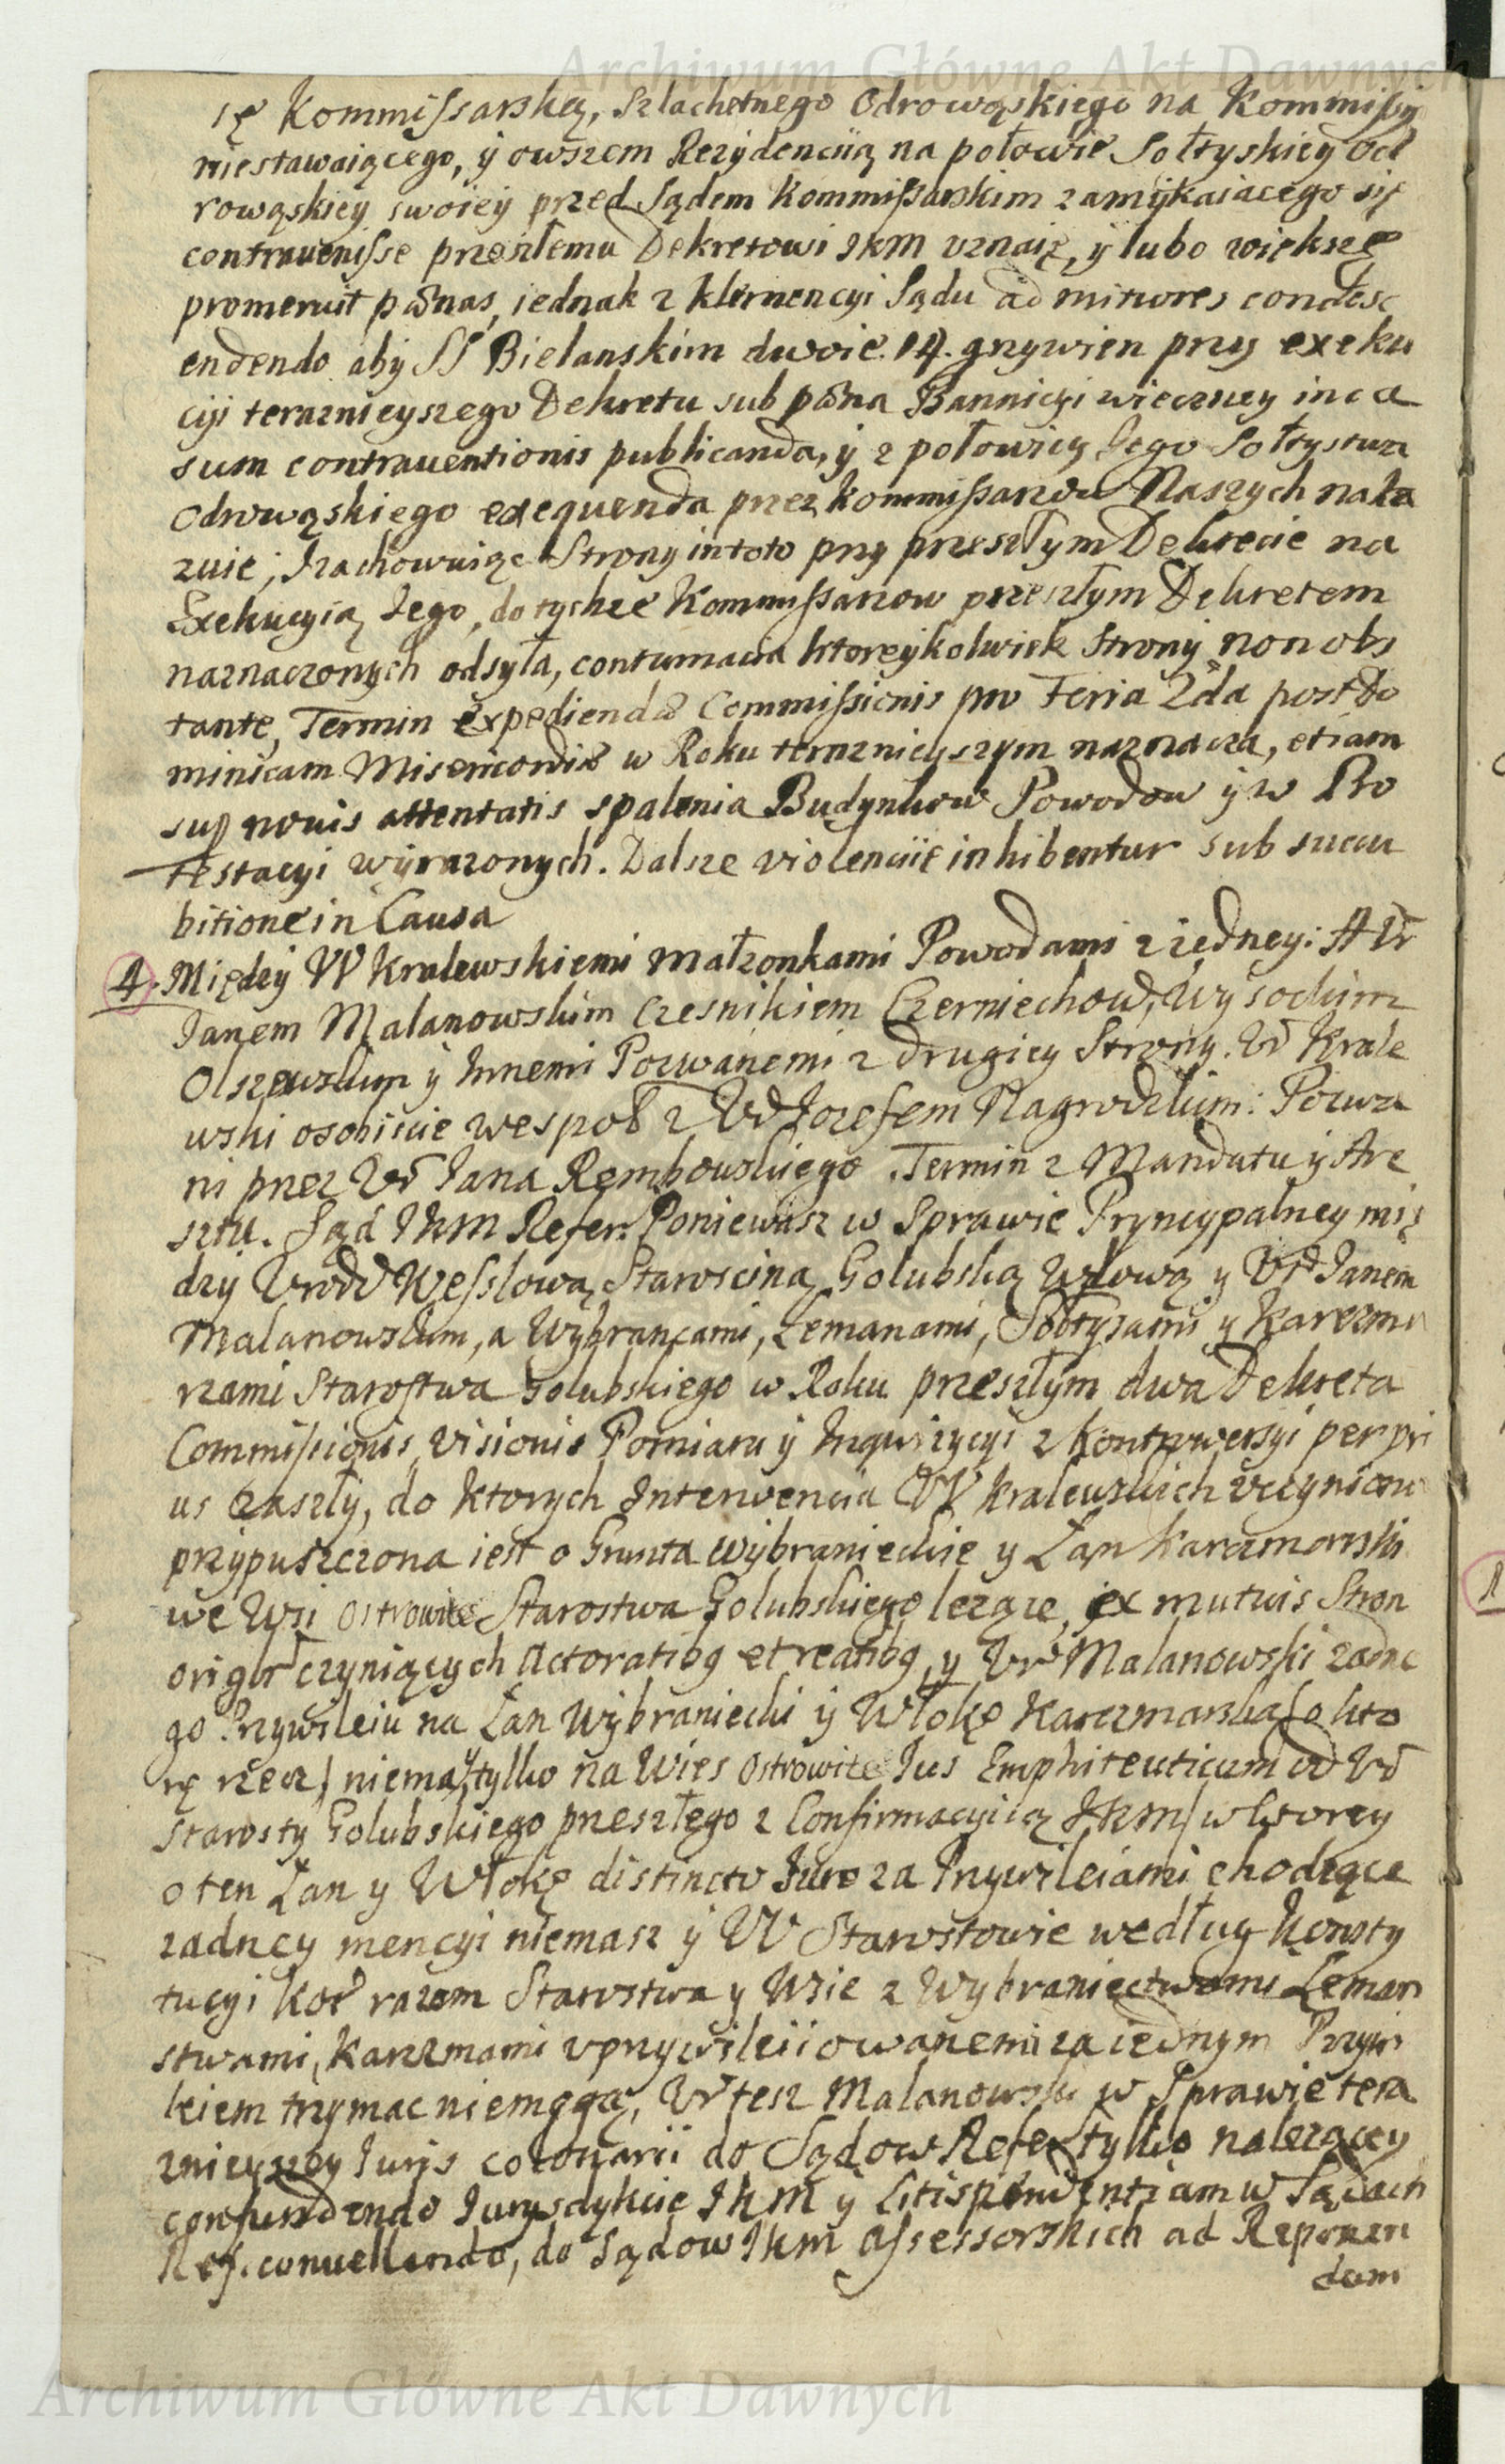 Archiwum Główne Akt Dawnych
ię Kommissarską, Szlachetnego Odrowąskiego na Kommissÿ
niestawaiącego, ÿ owszem Rezÿdencÿią na połowie Sołtyskieÿ Od
rowąskieÿ swoieÿ przed Sądem Kommissarskim zamÿkaiacego się
contravenisse przeszłemu Dekretowi JKM vznaię, ÿ lubo większe
promeruit pœnas, iednak z klemencyi Sądu ad mitiores condesc
endendo aby SS Bielanskim dwoie. 14. grzywien przy exeku
cyi teraznieyszego Dekretu sub pœna Bannicyi wieczney in ca
sum contraventionis publicanda, ÿ z połowicy Jego Sołtystwa
Odrowąskiego exequenda przez Kommissarzow Naszych naka
zuie; Izachowuiąc Strony in toto przy przeszłym Dekrecie na
Exekucyią Jego, do tychze Kommissarzow przeszłym Dekretem
naznaczonych odsyła, contumacia ktoreykolwiek Strony non obs
tante, Termin expediendæ Commissionis pro Feria 2da post Do
minicam Misericordiæ w Roku teraznieyszym naznacza, etiam
sup novis attentatis spalenia Budynkow Powodow ÿ w Pro
testacyi wÿrazonych. Dalsze violenciie inhibentur sub succu
bitione in Causa
4. Międzÿ W Kralewskiemi małzonkami Powodami z iedney: A Ur
Janem Malanowskim Czesnikiem Czerniechow, Wysockim
Olszewskim ÿ Innemi Pozwanemi z drugiey Strony. Ur Krale
wski osobiscie wespoł z Ur Jozefem Nagrodzkim: Pozwa
ni przez Ur Jana Rembowskiego. Termin z Mandatu ÿ Are
sztu. Sąd JKM Refer. Poniewasz w Sprawie Pryncypalney mię
dzy Urod Wesslową Starościną Golubską Wdową y Ur Janem
Malanowskim, a Wybrancami, Lemanami, Sołtysami y Karczma
rzami Starostwa Golubskiego w Roku przeszłym dwa Dekreta
Commissionis, visionis Pomiaru ÿ Inqwizycyi z Kontrowersyi per pri
us zaszły, do ktorych Intervencia W Kralewskich vczyniona
przÿpuszczona iest o Grunta wÿbranieckie y Łan Karczmarski
we Wsi Ostrowite Starostwa Golubskiego lezące, ex mutuis Stron
origtr czyniących Actoratibq et reatibq, y Ur Malanowski zadne
go Przywileiu na Łan Wÿbraniecki ÿ Włokę Karczmarską /o kto
rę rzecz/ niema, tylko na Wies Ostrowite Jus Emphiteuticum od Ur
Starosty Golubskiego przeszłego z Confirmacyią JKM/ w ktorey
o ten Łan y Włokę distincto Jure za Przywileiami chodzące
zadney mencyi niemasz ÿ W Starostowie według Konsty
tucyi Kor razem Starostwa y Wsie z Wybraniectwami Leman
stwami, Karczmami vprzywileiiowanemi za iednym Przywi
leiem trzymac niemogą, Ur tesz Malanowski w Sprawie tera
znieyszey Juris colonarii do Sądow Refer tylko nalezącey
confundendo Jurysdykcie JKM ÿ Litispendentiam w Sądach
Ref. convellendo, do Sądow JKM Assessorskich ad Reponen
dum
Archiwum Główne Akt Dawnych